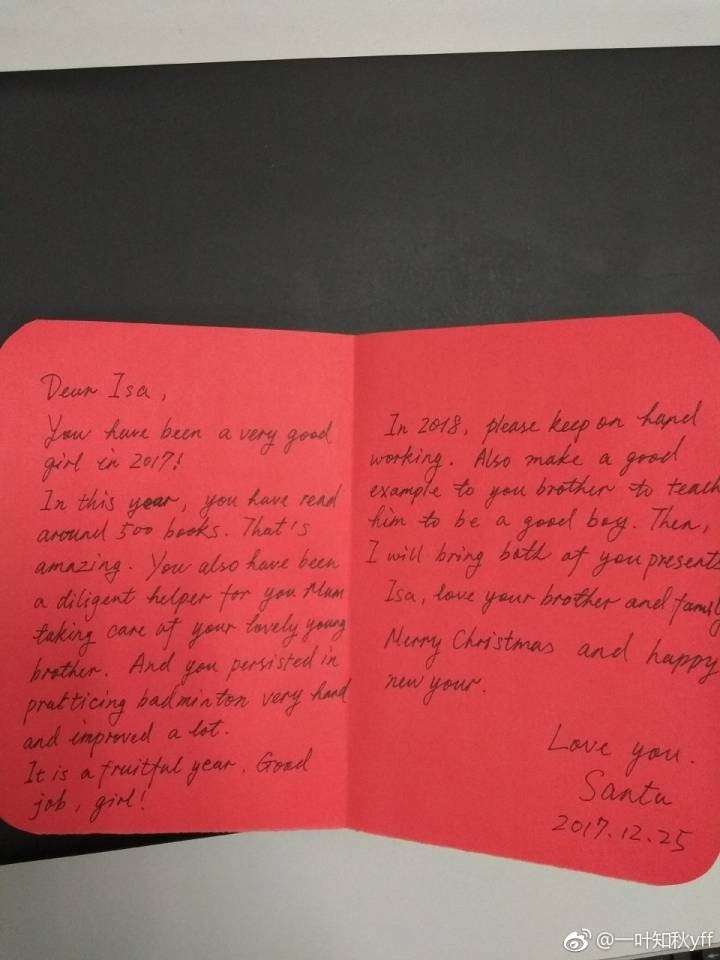 Dear Isa,
You have been a very good
girl in 2017!
In this year, you have read
around 500 books. That's
amazing. You also have been
a diligent helper for you Mum
taking care of your lovely young
brother. And you persisted in
practicing badminton very hard
and improved a lot.
It is a fruitful year. Good
job, girl!
In 2018, please keep on hard
working. Also make a good
example to you brother to teach
him to be a good boy. Then,
I will bring both of you presents
Isa, love your brother and family
Merry Christmas and happy
new your.
Love you.
Santa
2017.12.25
@一叶知秋yff